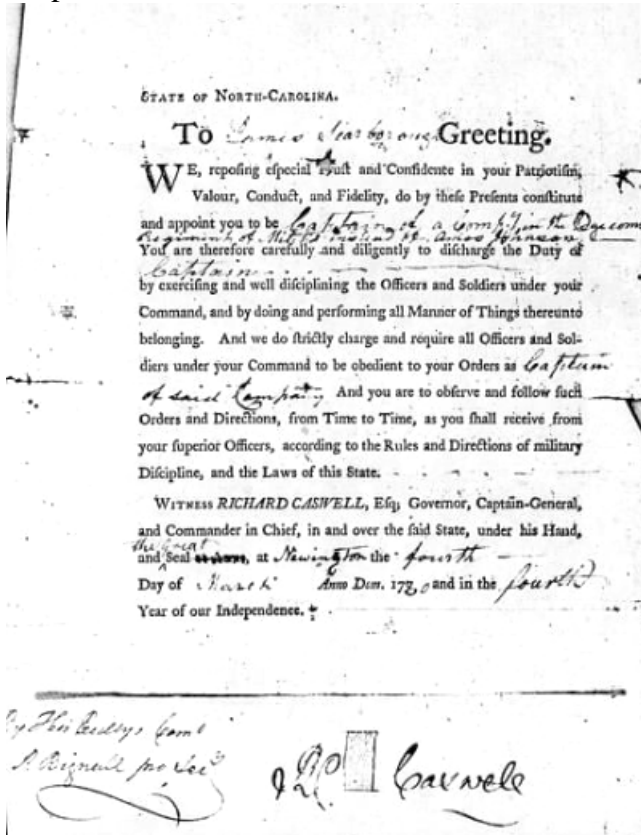 STATE OF NORTH-CAROLINA.
To James Scarborough Greeting.
WE, reposing eſpecial Truſt and Confidence in your Patriotiſm,
Valour, Conduct, and Fidelity, do by theſe Preſents conſtitute
and appoint you to be Captain of a Compy. in the Edgecomb
Regiment of Militia inſtead of Amos Johnson
You are therefore carefully and diligently to diſcharge the Duty of
Captain
by exerciſing and well diſciplining the Officers and Soldiers under your
Command, and by doing and performing all Manner of Things thereunto
belonging. And we do ſtrictly charge and require all Officers and Sol-
diers under your Command to be obedient to your Orders as Captain
of said Company And you are to obſerve and follow ſuch
Orders and Directions, from Time to Time, as you ſhall receive from
your ſuperior Officers, according to the Rules and Directions of military
Diſcipline, and the Laws of this State.
WITNESS RICHARD CASWELL, Eſq; Governor, Captain-General,
and Commander in Chief, in and over the ſaid State, under his Hand,
the Great
and Seal, at Newington the fourth
Day of March Anno Dom. 1780 and in the fourth
Year of our Independence.
By His Comd
pro Secy
Rd Caswell